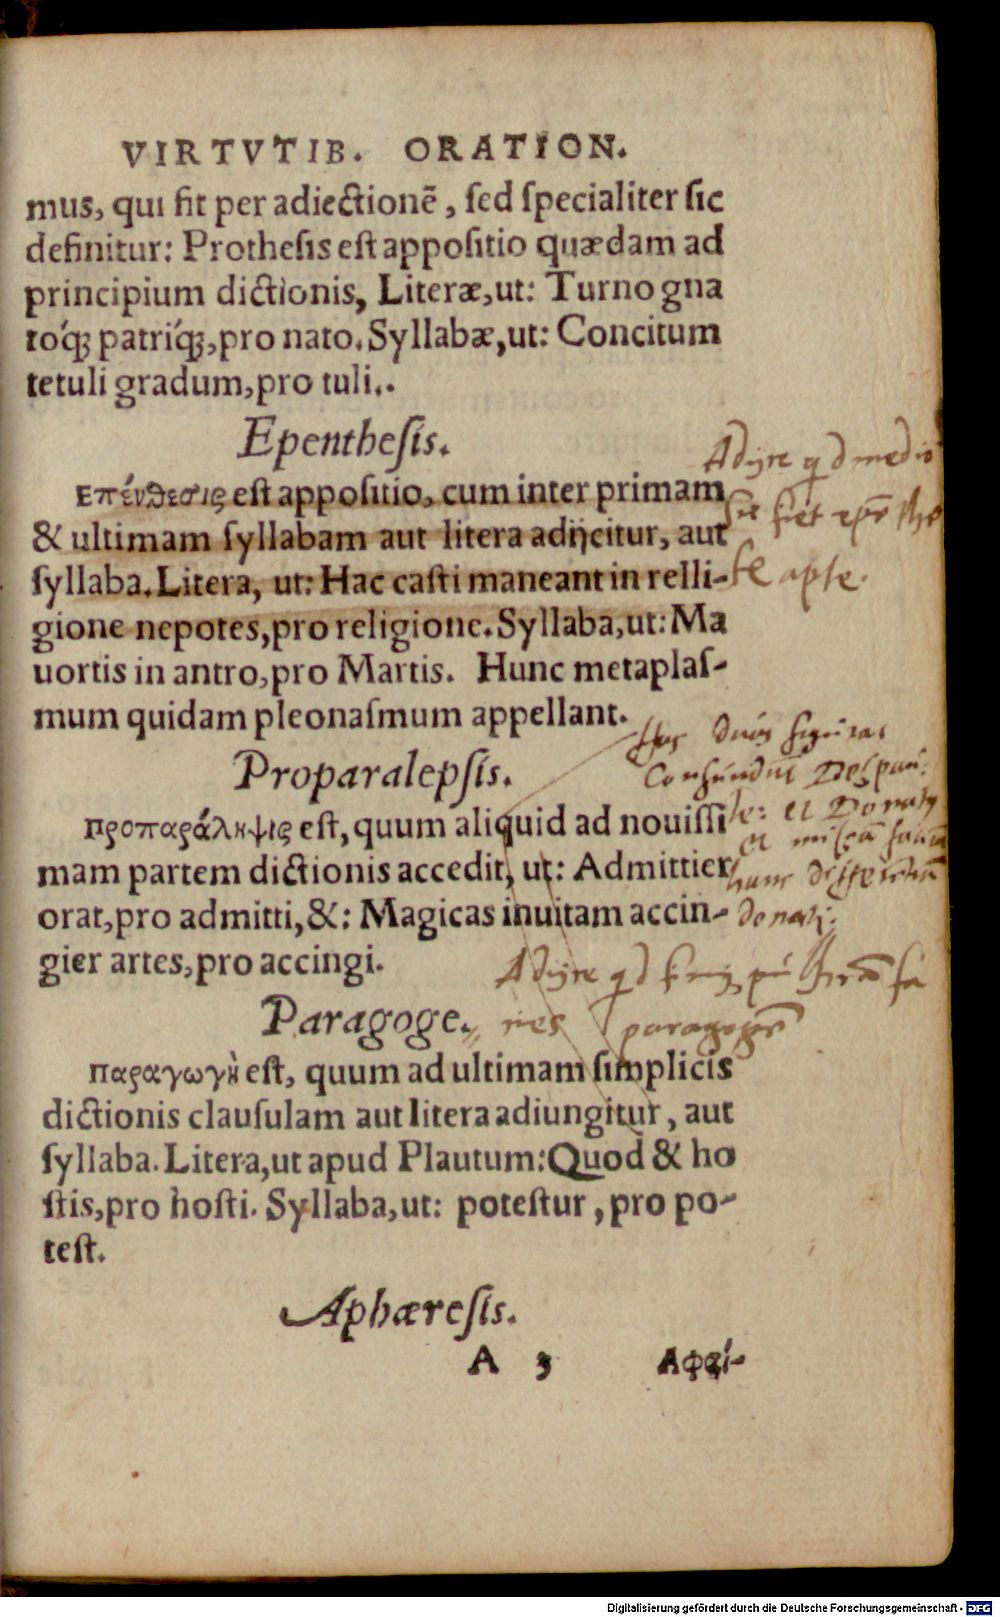 VIRTVTIB. ORATION.
mus, qui fit per adiectionẽ, ſed ſpecialiter ſic
definitur: Protheſis eſt appoſitio quædam ad
principium dictionis, Literæ, ut: Turno gna
toq́ꝫ patriq́ꝫ, pro nato. Syllabæ, ut: Concitum
tetuli gradum, pro tuli..
Epentheſis.
Επένθεσις eſt appoſitio, cum inter primam
& ultimam ſyllabam aut litera adijcitur, aut
ſyllaba. Litera, ut: Hac caſti maneant in relli-
gione nepotes, pro religione. Syllaba, ut: Ma
uortis in antro, pro Martis. Hunc metaplaſ-
mum quidam pleonaſmum appellant.
Adijre qd medio
fiet
apte.
Proparalepſis.
Προπαράληψις eſt, quum aliquid ad nouiſſi
mam partem dictionis accedit, ut: Admittier
orat, pro admitti, &: Magicas inuitam accin-
gier artes, pro accingi.
Has duas figuras
et Donatꝰ
Donati.
Paragoge.
Adijre qd
paragogẽ
παραγωγὴ eſt, quum ad ultimam ſimplicis
dictionis clauſulam aut litera adiungitur, aut
ſyllaba. Litera, ut apud Plautum: Quod & ho
ſtis, pro hoſti. Syllaba, ut: poteſtur, pro po-
teſt.
Aphæreſis.
A 3 Αφαί-
Digitalisierung gefördert durch die Deutsche Forschungsgemeinschaft - DFG